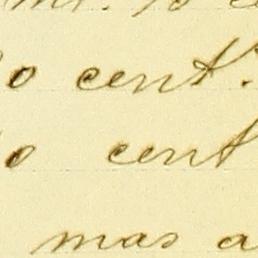 o cent.
o cent
mas a